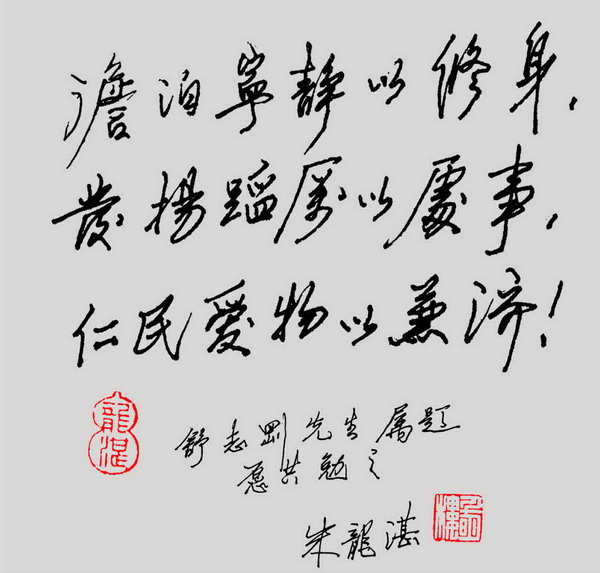 澹泊寧靜以修身，
發揚蹈厲以處事，
仁民愛物以兼濟！
舒志剛先生屬題
愿共勉之
朱龍湛
龍湛